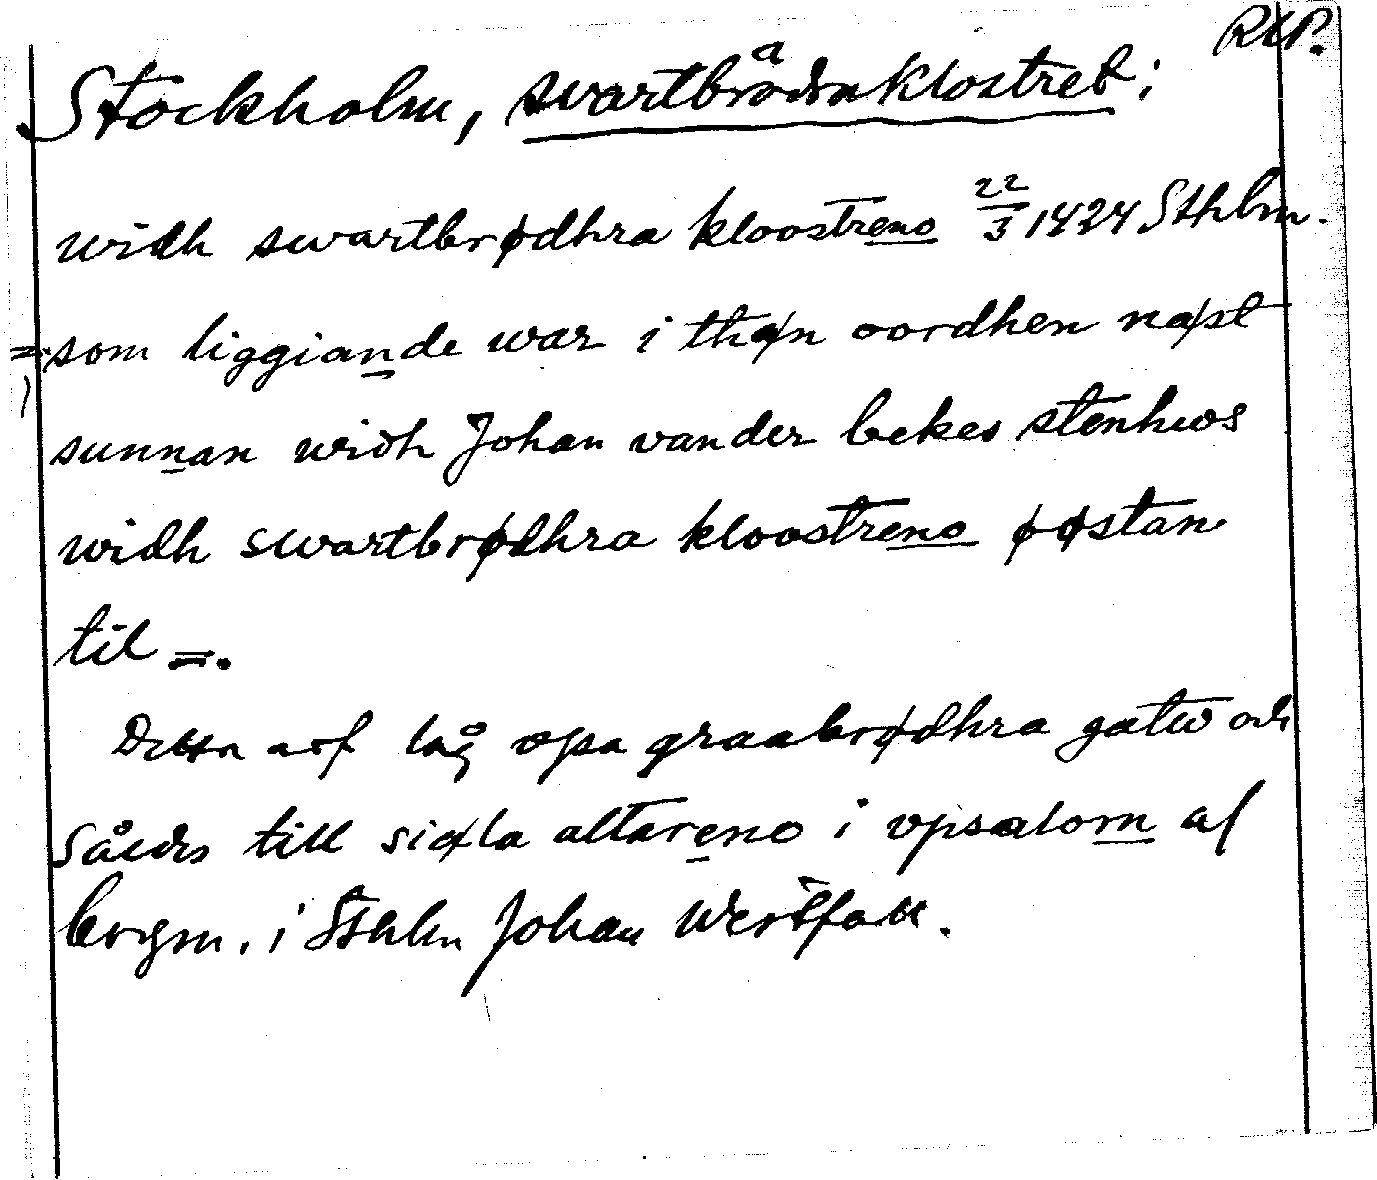 RAP.
Stockholm, svartbrödraklostret;
widh swartbrødhra kloostreno 22/3 1424 Sthlm.
= som liggiande war i thøn oordhen næst
sunnan widh Johan vander bekes stenhws
widh swartbrødhra kloostreno øøstan
til =.
Detta arf låg vpa graabrødhra gatw och
såldes till siæla altareno i vpsalom af
borgm. i Sthlm Johan Westfall.